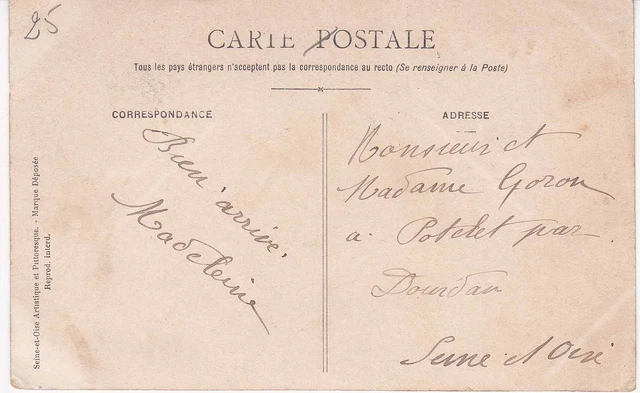 25
CARTE POSTALE
Tous les pays étrangers n'acceptent pas la correspondance au recto (Se renseigner à la Poste)
CORRESPONDANCE
Bien arrivé,
Madeleine
ADRESSE
Monsieur et
Madame Goron
a Potelet par
Dourdan
Seine et Oise
Seine-et-Oise Artistique et Pittoresque. - Marque Déposée
Reprod. interd.